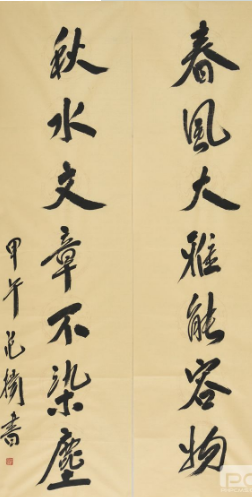 春風大雅能容物
秋水文章不染塵
甲午范橋書